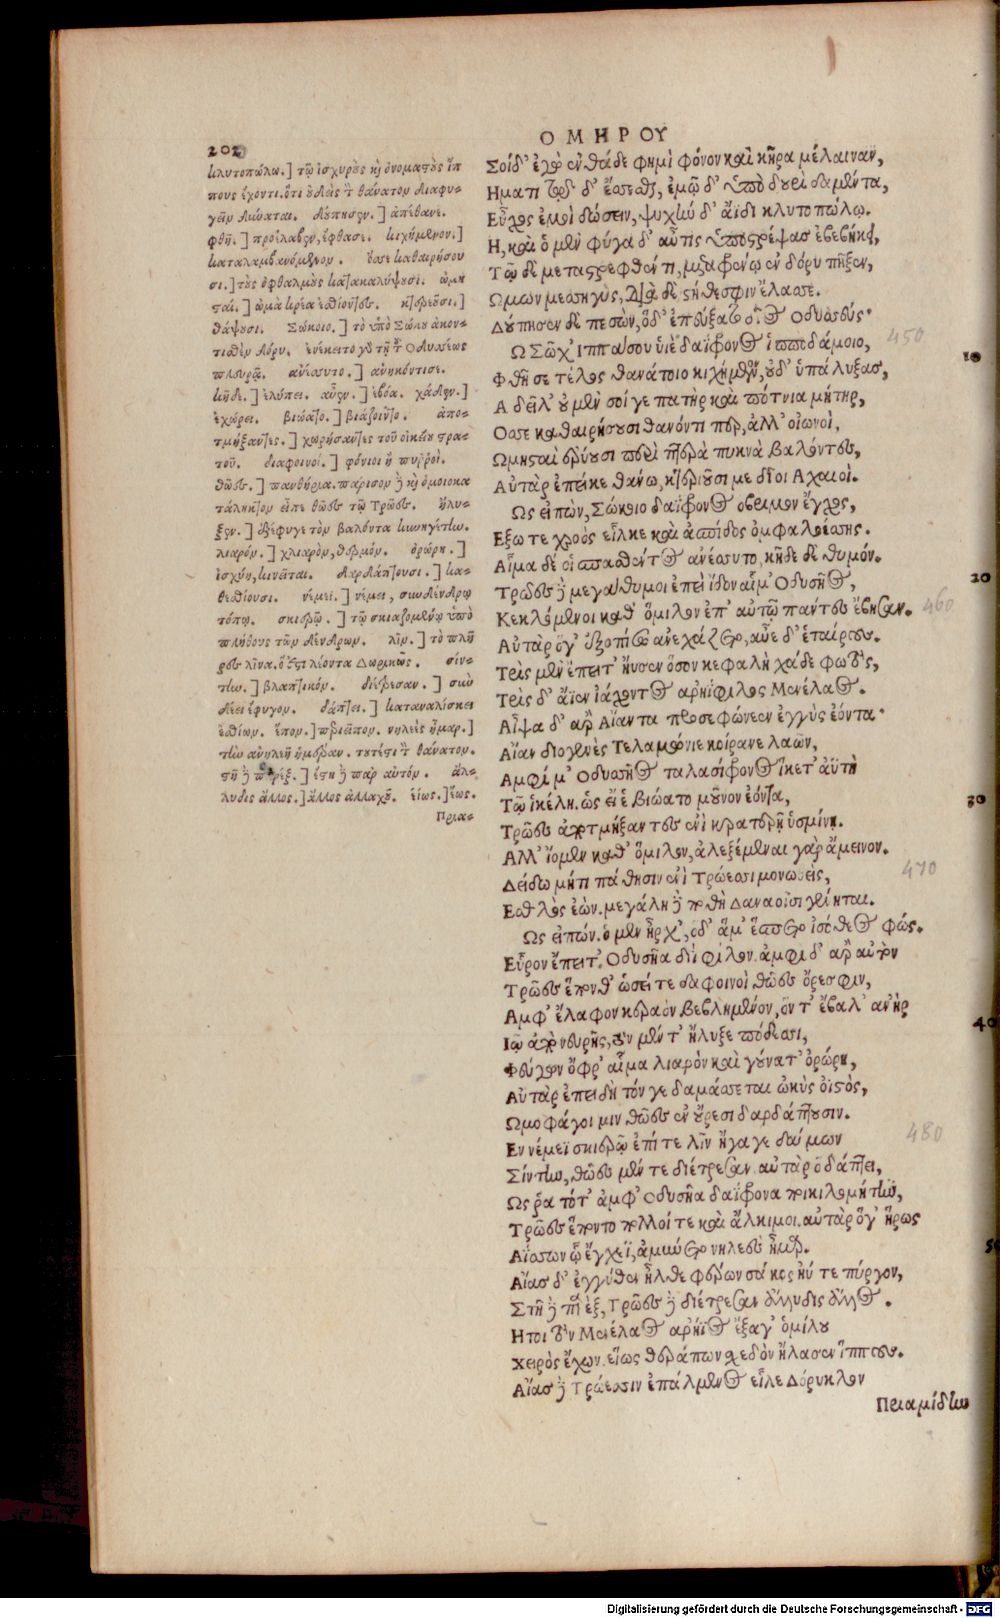 202
ΟΜΗΡΟΥ
κλυτοπώλω.] τῷ ἰσχυροὺς καὶ ὀνομαστοὺς ἵπ
πους ἔχοντι. ὅτι οὐδεὶς τὸν θάνατον διαφυ-
γεῖν δύναται. δύπησεν.] ἀπέθανε.
φθῆ.] προέλαβεν, ἔφθασε. κιχήμενον.]
καταλαμβανόμενον. ὄσσε καθαιρήσου
σι.] τοὺς ὀφθαλμοὺς κατακαλύψουσι. ὠμη
σταί.] ὠμὰ κρέα ἐσθίοντες. κτεριοῦσι.]
θάψουσι. Σώκοιο.] τὸ ὑπὸ Σώκου ἀκον-
τισθὲν δόρυ. ἐνέκειτο γὰρ τῇ τοῦ Οδυσσέως
πλευρᾷ. ἀνέσσυτο.] ἀνηκόντισε.
κῆδε.] ἐλύπει. αὖεν.] ἐβόα. χάδεν.]
ἐχώρει. βιώατο.] βιάζοιντο. ἀπο-
τμήξαντες.] χωρήσαντες τοῦ οἰκείου στρα-
τοῦ. δαφοινοί.] φόνιοι ἢ πυρροί.
θῶες.] πανθήρια. πάρισον δὲ καὶ ὁμοιοκα
τάληκτον εἶπε θῶες τῷ Τρῶες. ἤλυ-
ξεν.] ἐξέφυγε τὸν βαλόντα κυνηγέτην.
λιαρόν.] χλιαρὸν, θερμόν. ὀρώρη.]
ἰσχύῃ, κινεῖται. δαρδάπτουσι.] κα-
θεσθίουσι. νέμεϊ.] νέμει, συνδένδρῳ
τόπῳ. σκιερῷ.] τῷ σκιαζομένῳ ὑπὸ
πλήθους τῶν δένδρων. λῖν.] τὸ πλῆ
ρες λῖνα. ὅ ἐστι λέοντα Δωρικῶς. σίν-
την.] βλαπτικόν. διέτρεσαν.] σὺν
δέει ἔφυγον. δάπτει.] καταναλίσκει
ἐσθίων. ἕπον.] περιεῖπον. νηλεὲς ἦμαρ.]
τὴν ἀνηλεῆ ἡμέραν. τουτέστι τὸν θάνατον.
στῆ δὲ παρέξ.] ἔστη δὲ παρ αὐτόν. ἄλ-
λυδις ἄλλος.] ἄλλος ἀλλαχοῦ. εἵως.] ἕως.
Πρια-
Σοί δ' ἐγὼ ἐνθάδε φημὶ φόνον καὶ κῆρα μέλαιναν,
Ηματι τῷδ' ἔσσεσθαι, ἐμῷ δ' ὑπὸ δουρὶ δαμέντα,
Εὖχος ἐμοὶ δώσειν, ψυχὴν δ' ἄϊδι κλυτοπώλῳ.
Η, καὶ ὁ μὲν φύγαδ' αὖτις ὑποστρέψας ἐβεβήκει,
Τῷ δὲ μεταστρεφθέντι, μεταφρένῳ ἐν δόρυ πῆξεν,
Ωμων μεσσηγὺς, διὰ δὲ στήθεσφιν ἔλασσε.
Δούπησεν δὲ πεσὼν, ὅδ' ἐπεύξατο δῖος Οδυσσεύς·
Ω Σῶχ' Ιππάσου υἱὲ δαΐφρονος ἱπποδάμοιο,
450
10
Φθῆ σε τέλος θανάτοιο κιχήμενον, οὐδ' ὑπάλυξας,
Α δεῖλ' οὐ μὲν σοί γε πατὴρ καὶ πότνια μήτηρ,
Οσσε καθαιρήσουσι θανόντι περ, ἀλλ' οἰωνοὶ,
Ωμησταὶ ἐρύουσι περὶ πτερὰ πυκνὰ βαλόντες,
Αὐτὰρ ἐπεί κε θάνω, κτεριοῦσι με δῖοι Αχαιοὶ.
Ως εἰπὼν, Σώκοιο δαΐφρονος ὄβριμον ἔγχος,
Εξω τε χροὸς εἷλκε καὶ ἀσπίδος ὀμφαλοέσσης.
Αἷμα δέ οἱ σπασθέντος ἀνέσσυτο, κῆδε δὲ θυμόν.
Τρῶες δὲ μεγάθυμοι ἐπεὶ ἴδον αἷμ' Οδυσῆος,
20
Κεκλόμενοι καθ' ὅμιλον ἐπ' αὐτῷ πάντες ἔβησαν.
460
Αὐτὰρ ὅγ' ἐξοπίσω ἀνεχάζετο, αὖε δ' ἑταίρους.
Τρὶς μὲν ἔπειτ' ἤυσεν ὅσον κεφαλὴ χάδε φωτὸς,
Τρὶς δ' ἄϊεν ἰάχοντος ἀρηΐφιλος Μενέλαος.
Αἶψα δ' ἄρ' Αἴαντα προσεφώνεεν ἐγγὺς ἐόντα·
Αἶαν διογενὲς Τελαμώνιε κοίρανε λαῶν,
Αμφί μ' Οδυσσῆος ταλασίφρονος ἵκετ' ἀϋτὴ
Τῷ ἰκέλη. ὡς εἴ ἑ βιώατο μοῦνον ἐόντα,
30
Τρῶες ἀποτμήξαντες ἐνὶ κρατερῇ ὑσμίνῃ.
Αλλ' ἴομεν καθ' ὅμιλον, ἀλεξέμεναι γὰρ ἄμεινον.
Δείδω μήτι πάθησιν ἐνὶ Τρώεσσι μονωθεὶς,
470
Εσθλὸς ἐών. μεγάλη δὲ ποθὴ Δαναοῖσι γένηται.
Ως εἰπών. ὁ μὲν ἦρχ', ὁ δ' ἅμ' ἕσπετο ἰσόθεος φώς.
Εὗρον ἔπειτ' Οδυσῆα διὶ φίλον. ἀμφὶ δ' ἄρ' αὐτὸν
Τρῶες ἕπονθ' ὡσεί τε δαφοινοὶ θῶες ὄρεσφιν,
Αμφ' ἔλαφον κεραὸν βεβλημένον, ὅν τ' ἔβαλ' ἀνὴρ
40
Ιῷ ἀπὸ νευρῆς, τὸν μέν τ' ἤλυξε πόδεσσι,
Φεύγων ὄφρ' αἷμα λιαρὸν καὶ γούνατ' ὀρώρη,
Αὐτὰρ ἐπειδὴ τόν γε δαμάσσεται ὠκὺς ὀϊστὸς,
Ωμοφάγοι μιν θῶες ἐν οὔρεσι δαρδάπτουσιν.
480
Εν νέμεϊ σκιερῷ ἐπί τε λῖν ἤγαγε δαίμων
Σίντην, θῶες μέν τε διέτρεσαν. αὐτὰρ ὁ δάπτει,
Ως ῥα τότ' ἀμφ' Οδυσῆα δαΐφρονα ποικιλομήτην,
Τρῶες ἕποντο πολλοί τε καὶ ἄλκιμοι. αὐτὰρ ὅγ' ἥρως
50
Αΐσσων ᾧ ἔγχεϊ, ἀμύνετο νηλεὲς ἦμαρ.
Αἴας δ' ἐγγύθεν ἦλθε φέρων σάκος ἠΰτε πύργον,
Στῆ δὲ παρέξ, Τρῶες δὲ διέτρεσαν ἄλλυδις ἄλλος.
Ητοι τὸν Μενέλαος ἀρήϊος ἔξαγ' ὁμίλου
Χειρὸς ἔχων. εἵως θεράπων σχεδὸν ἤλασεν ἵππους.
Αἴας δὲ Τρώεσσιν ἐπάλμενος εἷλε Δόρυκλον
Πριαμίδην
Digitalisierung gefördert durch die Deutsche Forschungsgemeinschaft - DFG